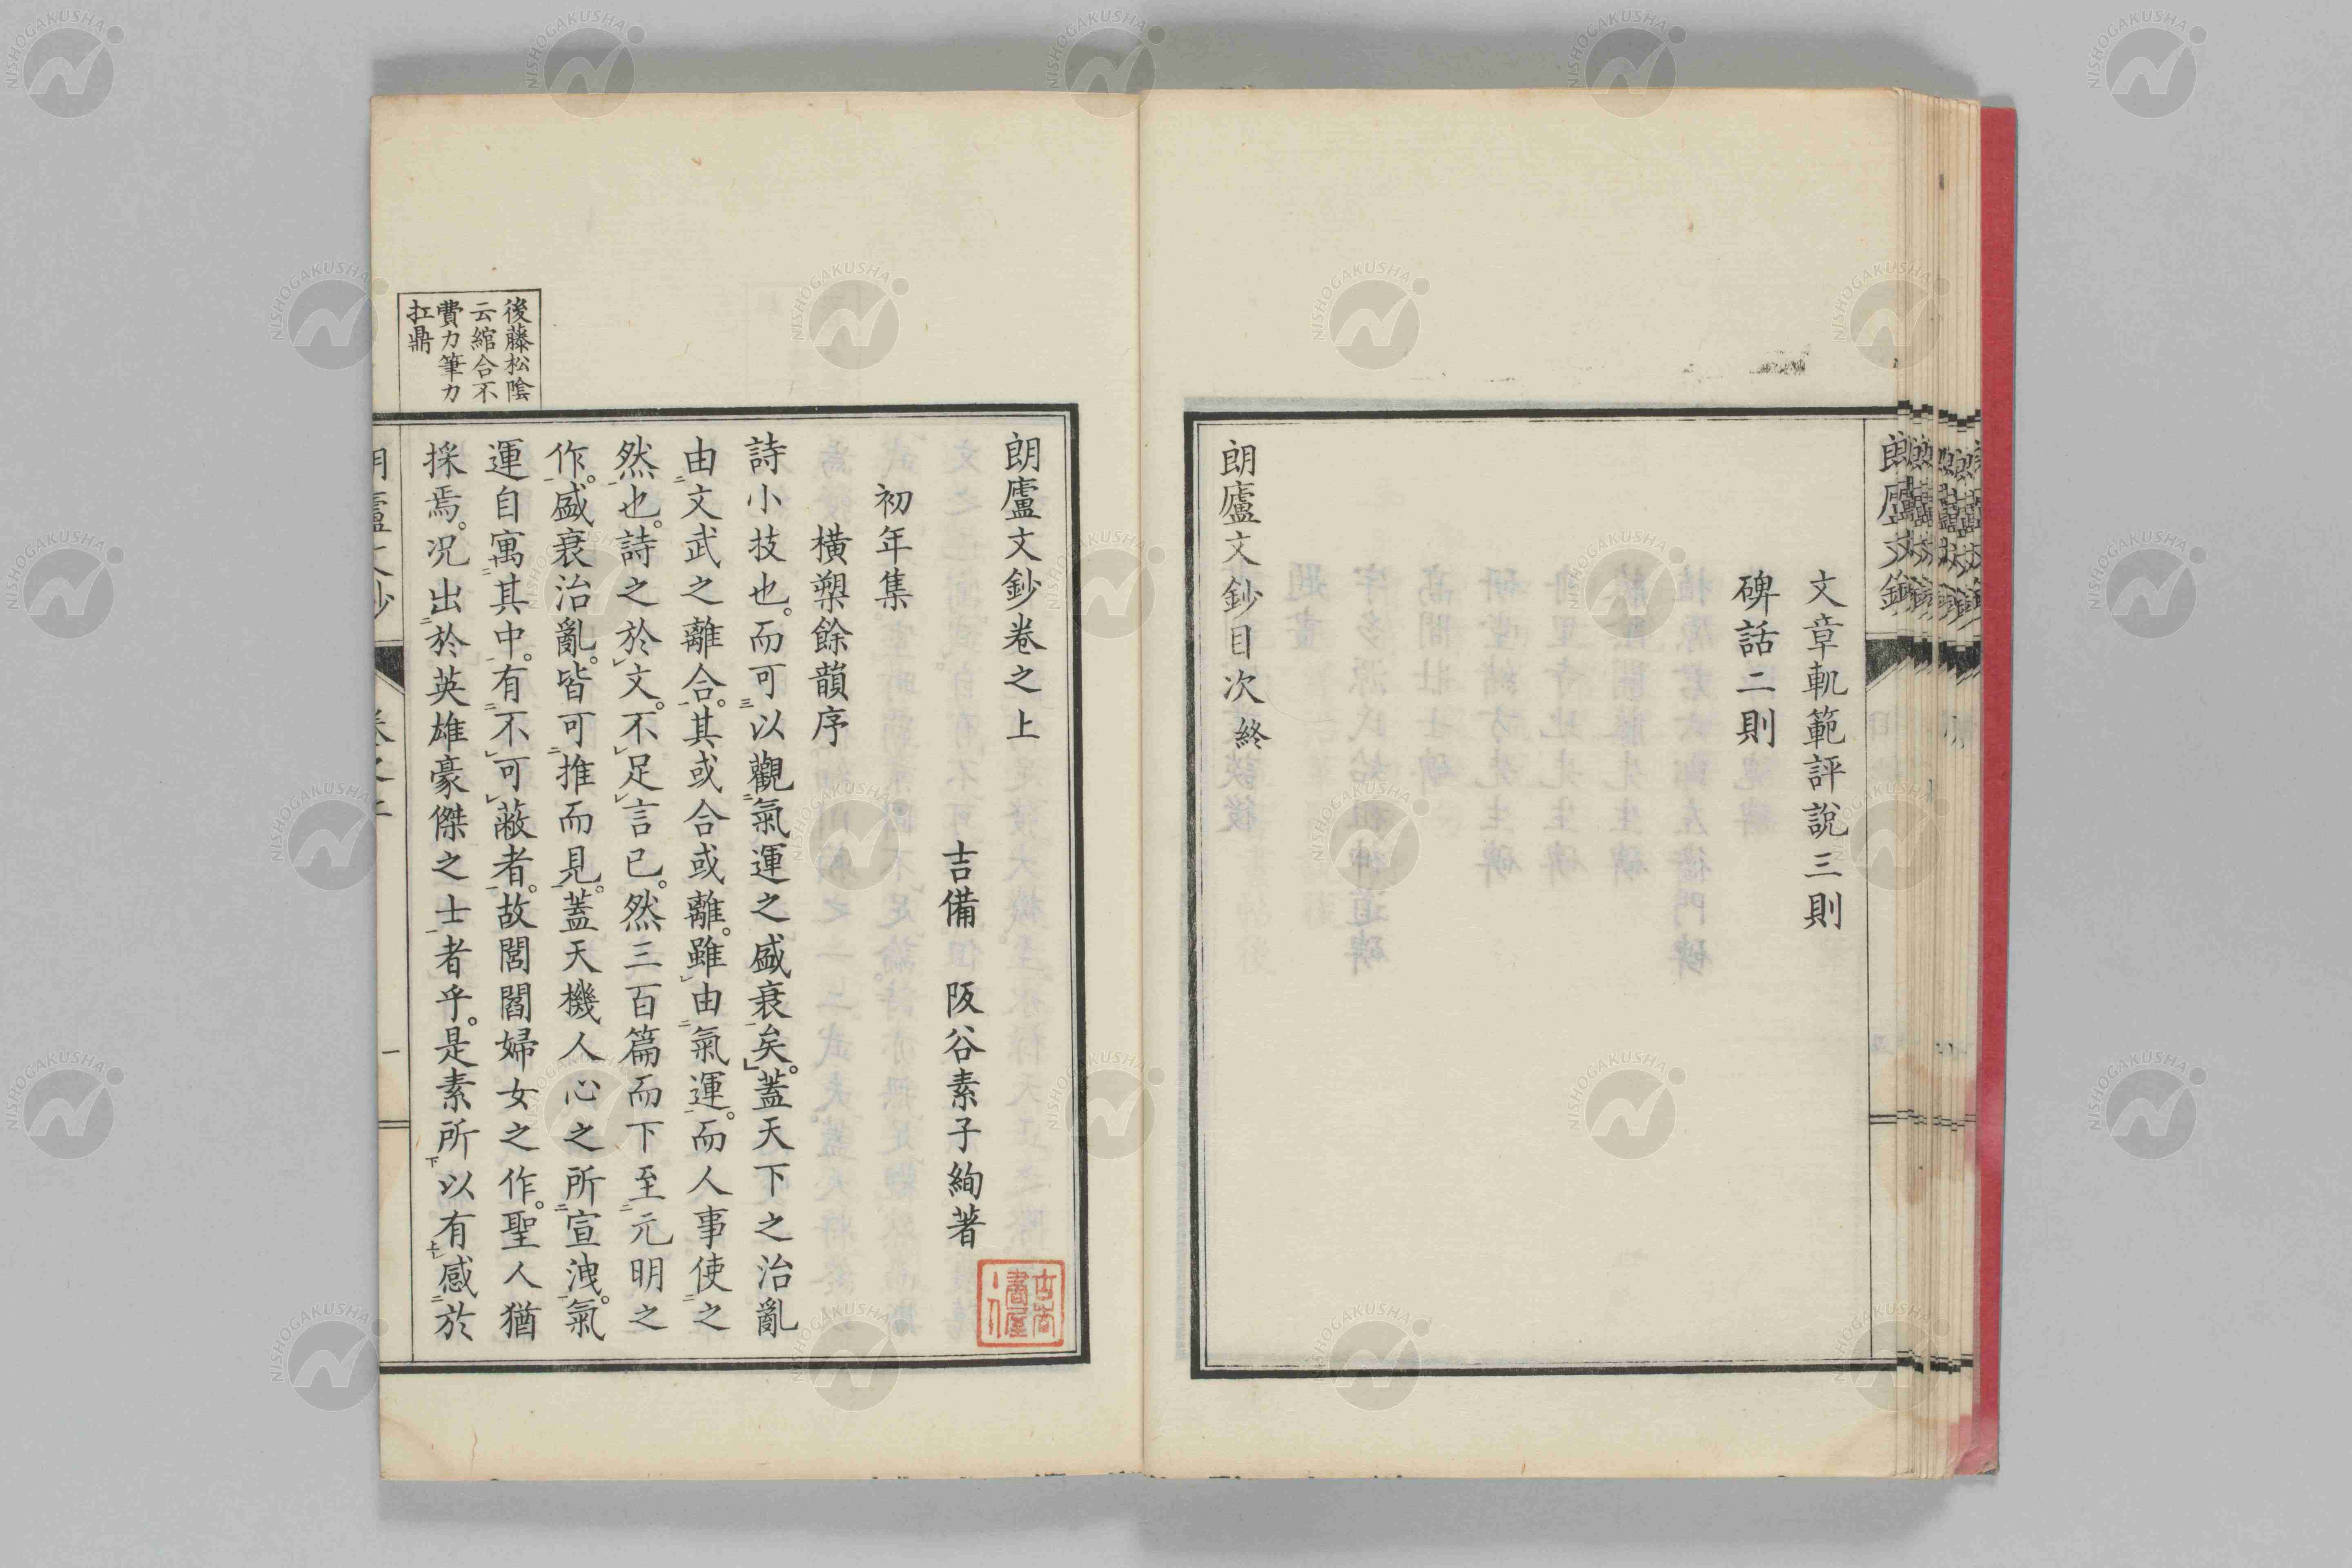 文章軌範評說三則
碑話二則
朗廬文鈔目次終
朗廬文鈔卷之上
吉備 阪谷素子絢著
初年集
橫槊餘韻序
詩小技也。而可以觀氣運之盛衰矣。蓋天下之治亂
由文武之離合。其或合或離。雖由氣運。而人事使之
然也。詩之於文。不足言已。然三百篇而下至元明之
作。盛衰治亂。皆可推而見。蓋天機人心之所宣洩。氣
運自寓其中。有不可蔽者。故閭閻婦女之作。聖人猶
採焉。況出於英雄豪傑之士者乎。是素所以有感於
後藤松陰
云綰合不
費力筆力
扛鼎
NISHOGAKUSHA